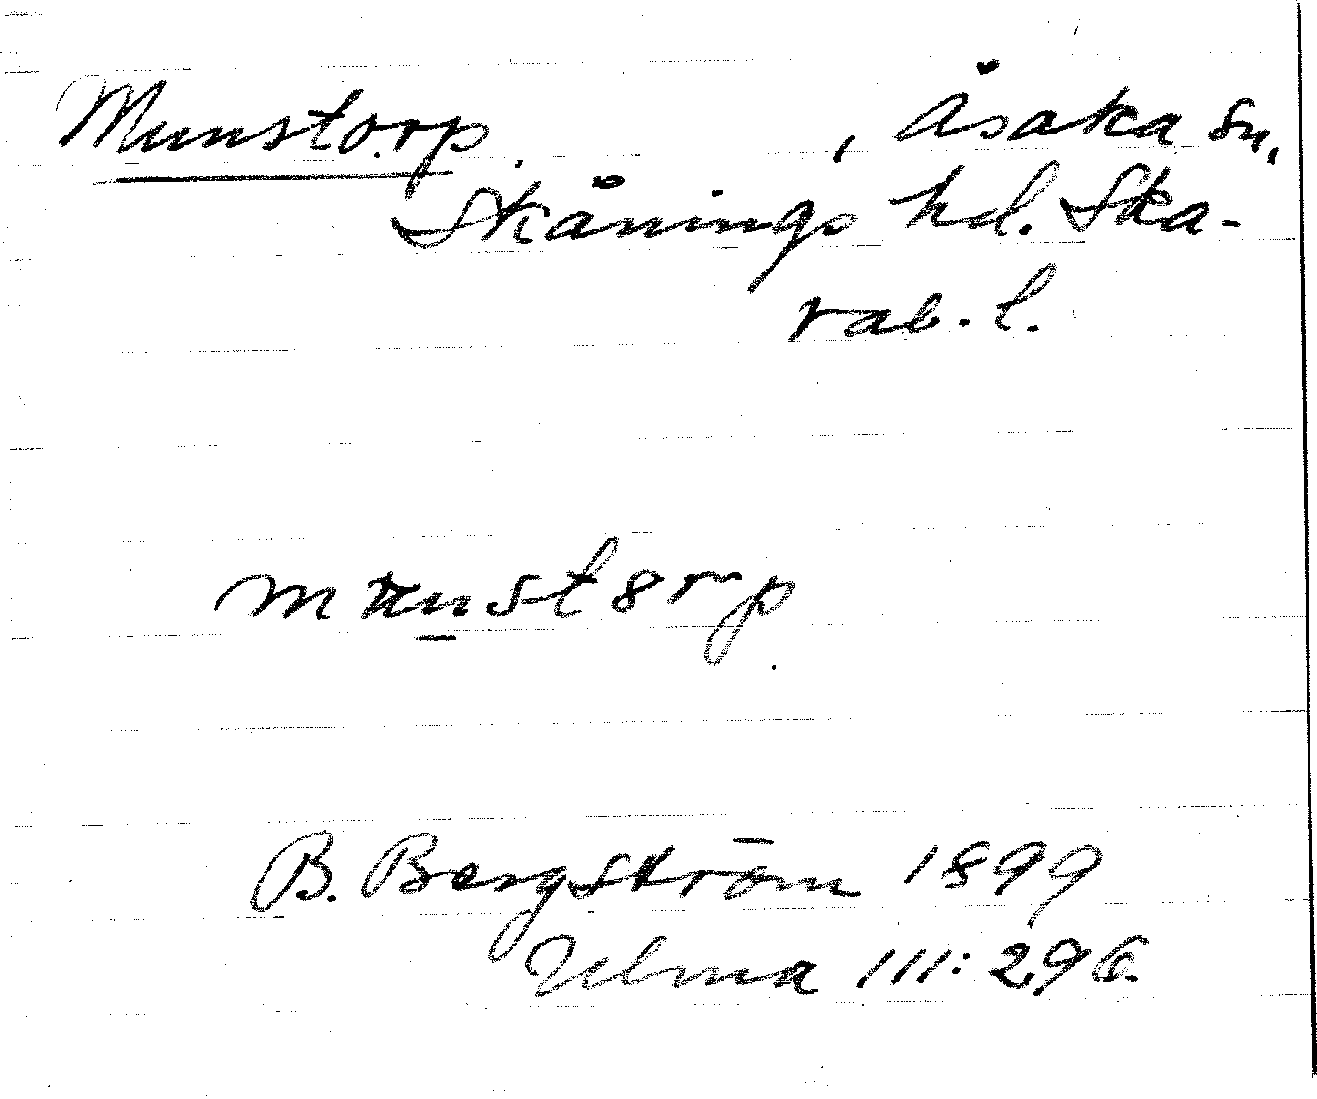 Munstorp, Åsaka sn,
Skånings hd. Ska-
rab. l.
B. Bergström 1899
Ulma 111:296.